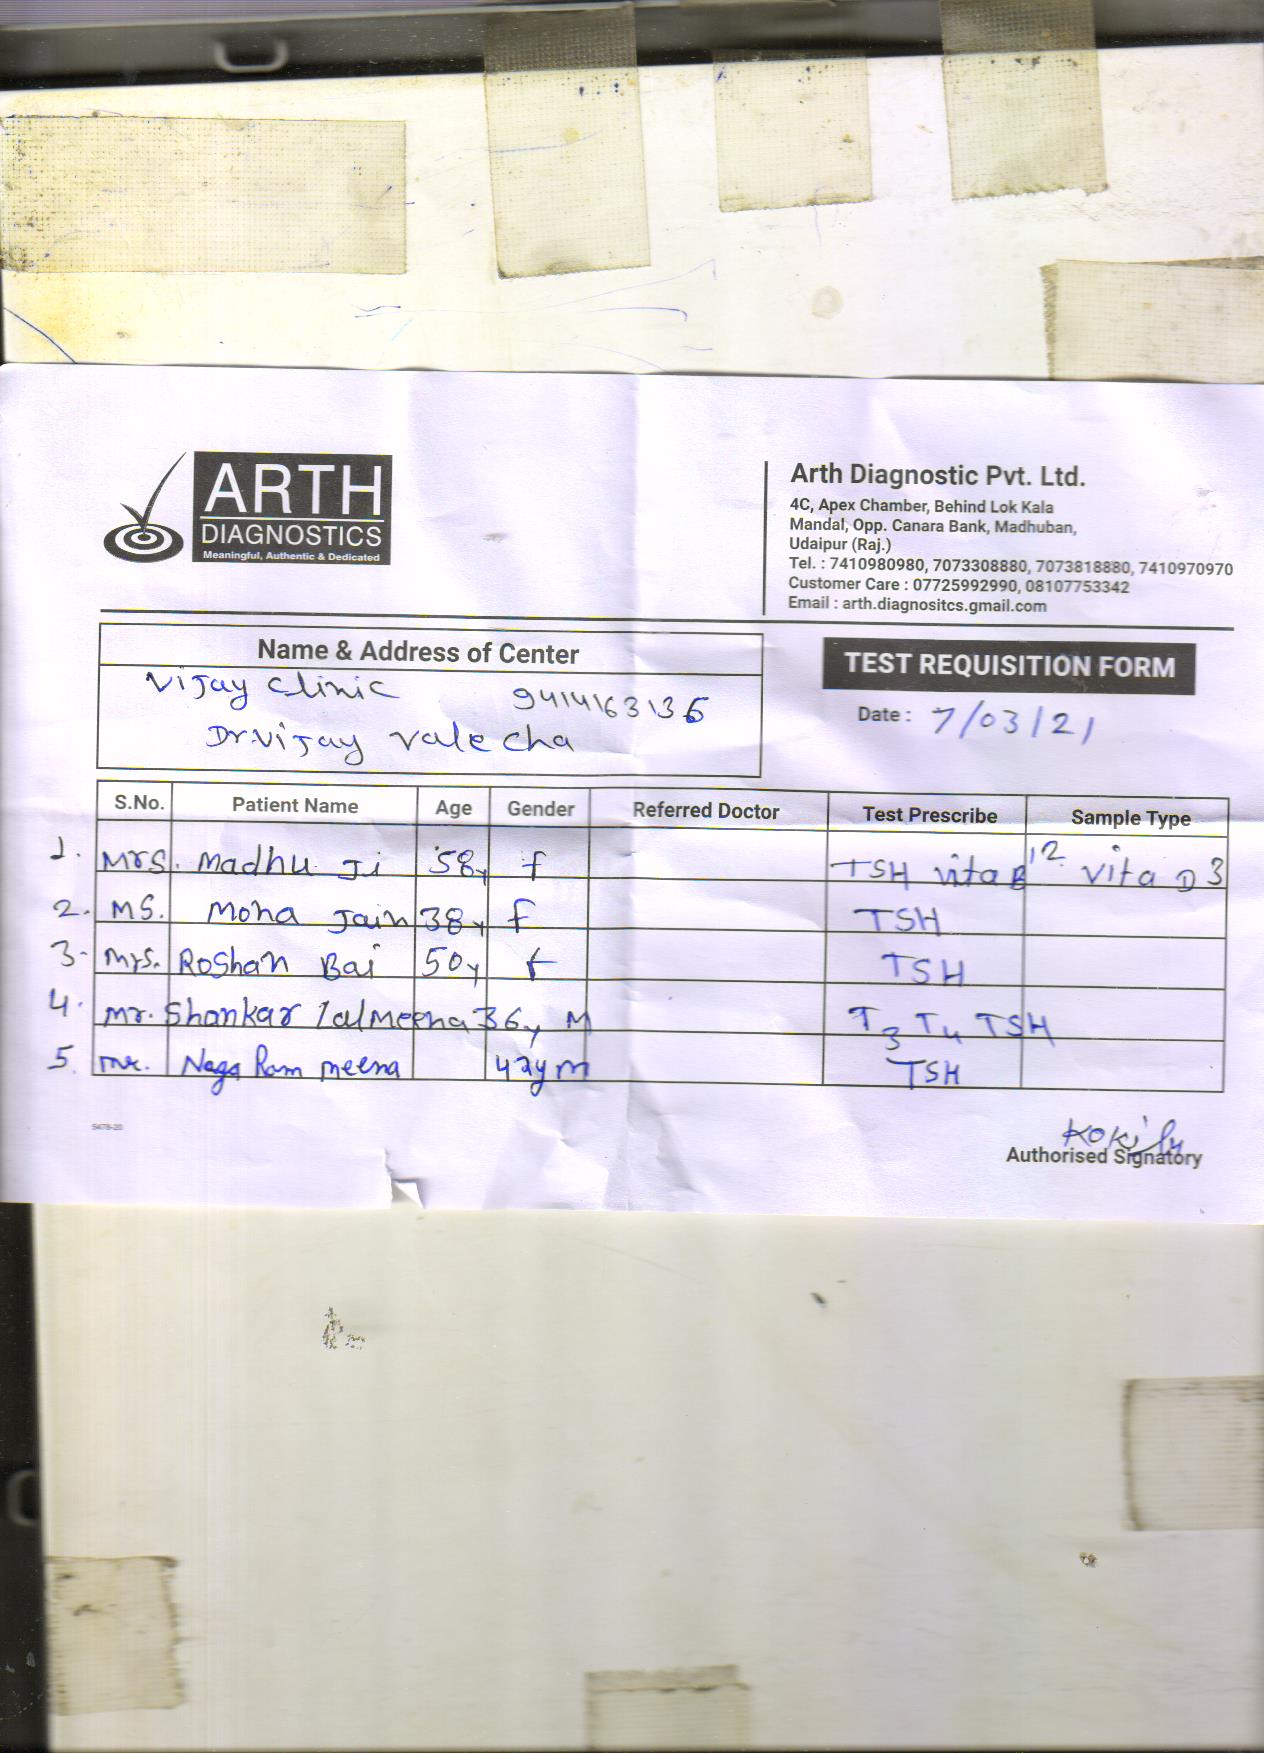 ARTH
DIAGNOSTICS
Meaningful, Authentic & Dedicated
Arth Diagnostic Pvt. Ltd.
4C, Apex Chamber, Behind Lok Kala
Mandal, Opp. Canara Bank, Madhuban,
Udaipur (Raj.)
Tel. : 7410980980, 7073308880, 7073818880, 7410970970
Customer Care : 07725992990, 08107753342
Email : arth.diagnositcs.gmail.com
Name & Address of Center
Vijay Clinic 9414163136
Dr. Vijay Valecha
TEST REQUISITION FORM
Date : 7/03/21
S.No. Patient Name Age Gender Referred Doctor Test Prescribe Sample Type
1. Mrs. Madhu Ji 58y f TSH Vita B12 Vita D3
2. MS. Mona Jain 38y f TSH
3. Mrs. Roshan Bai 50y f TSH
4. Mr. Shankar lal Meena 36y M T3 T4 TSH
5. Mr. Naga Ram meena 42y m TSH
5478-20
Authorised Signatory